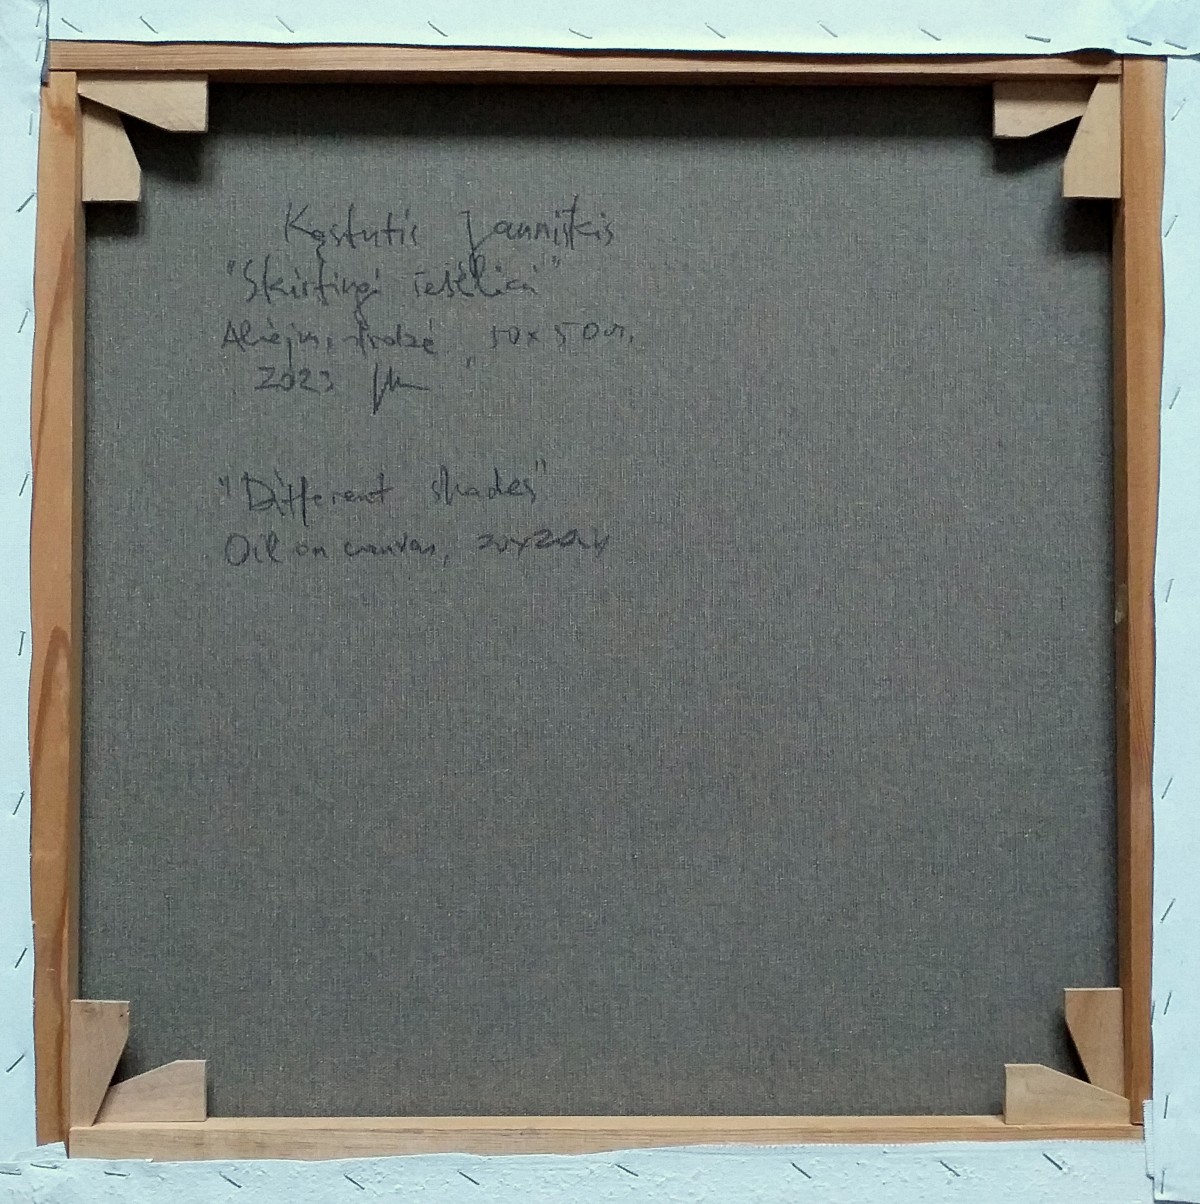 Kęstutis Jauniškis
"Skirtingi šešėliai"
Aliejus, drobė, 50x50cm,
2023
"Different shades"
Oil on canvas, 20x20in